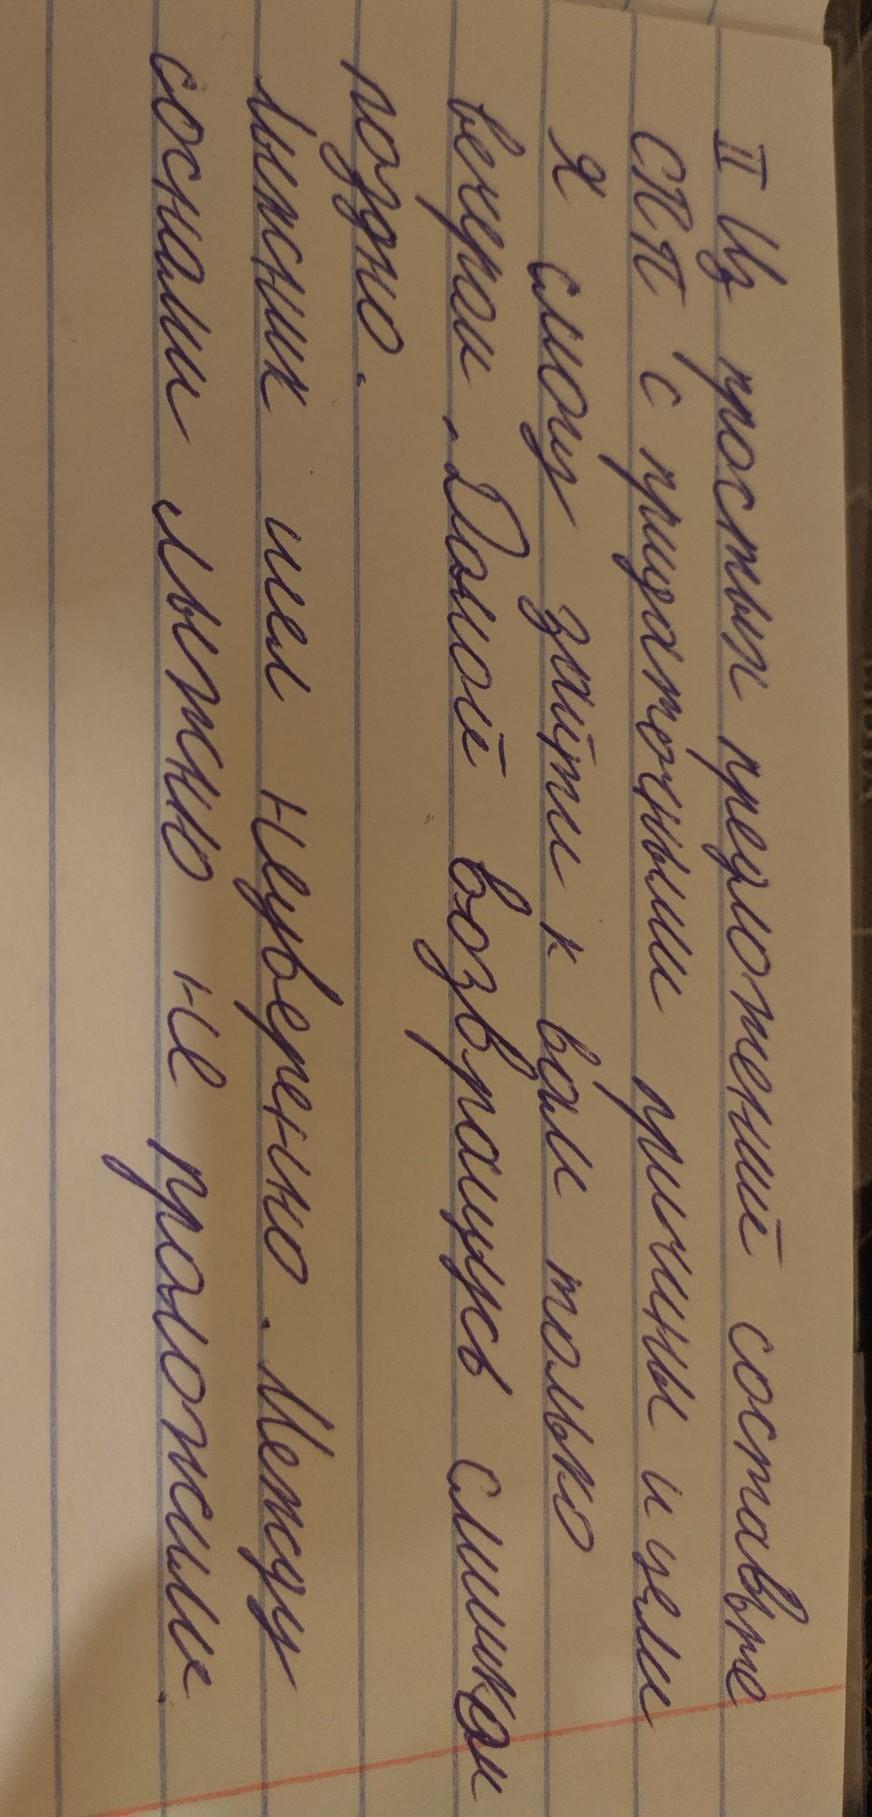 II Из простых предложений составьте
СПП с придаточными причины и цели
Я смогу зайти к вам только
вечером. Домой возвращусь слишком
поздно.
Лыжник шел неуверенно. Между
соснами лыжню не проложили.